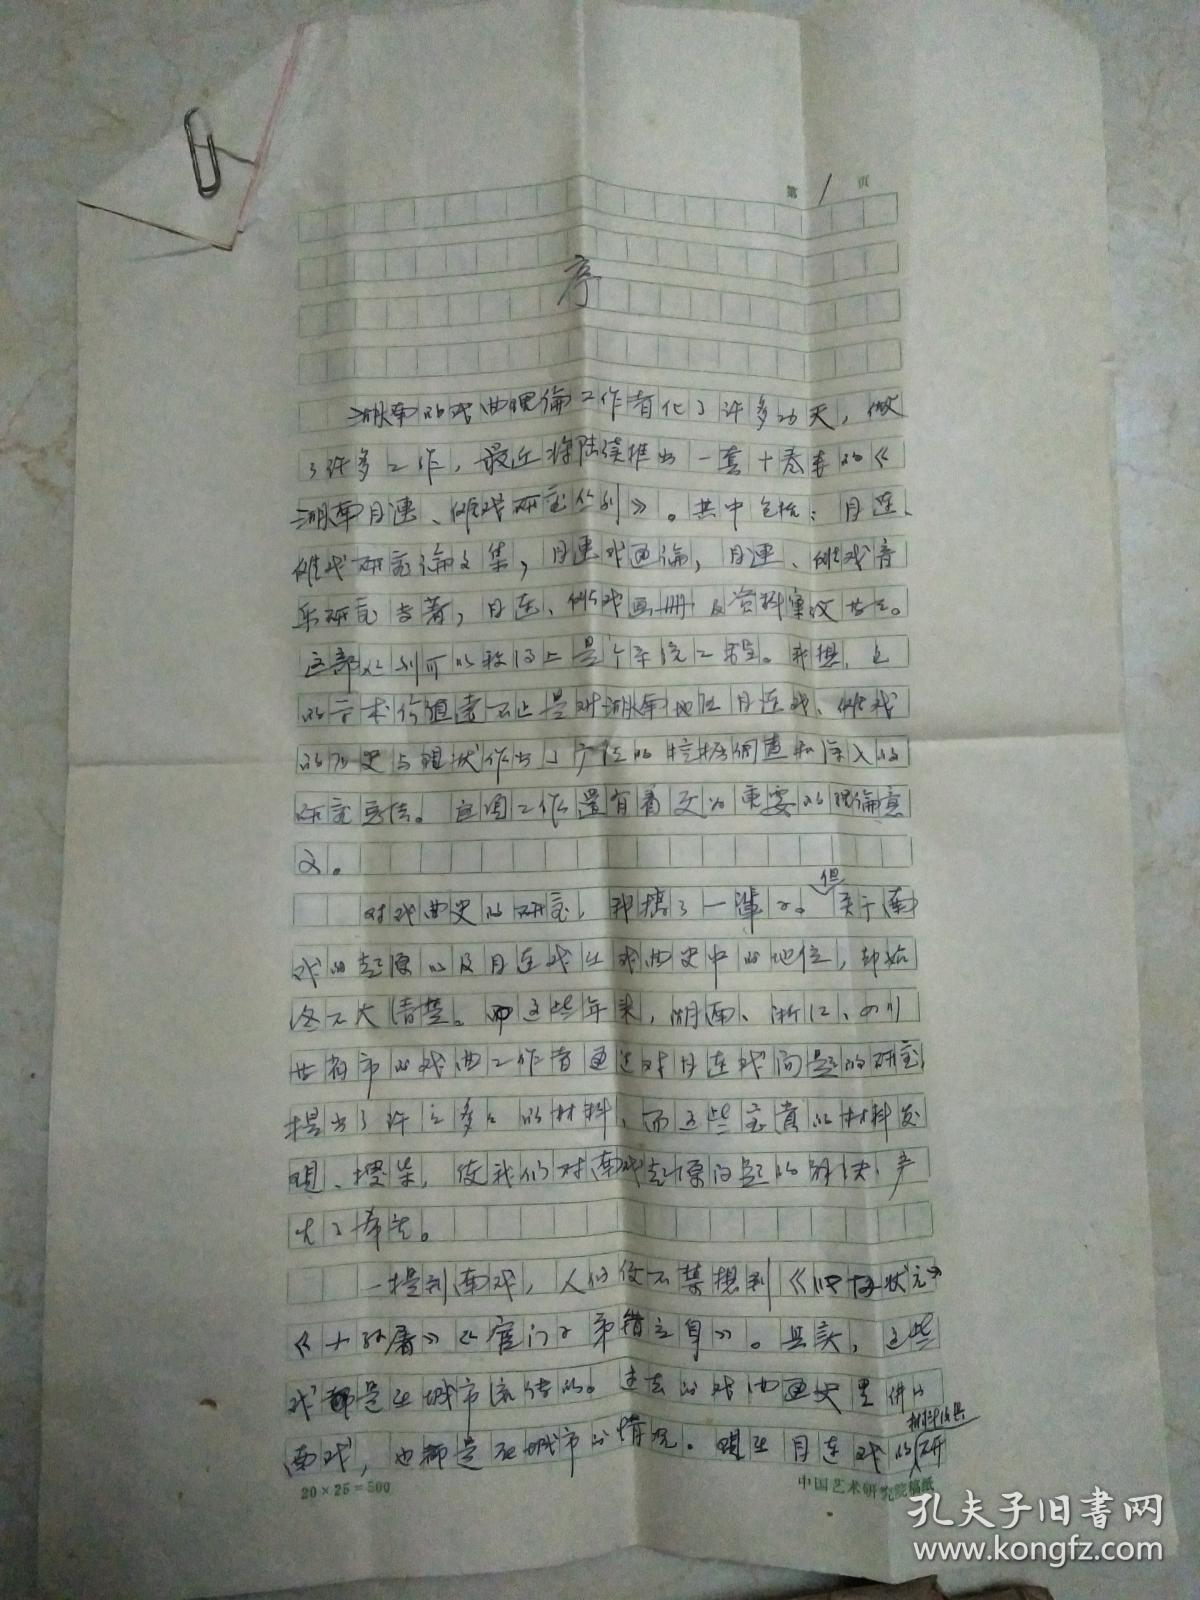 第 1 页
序
湖南的戏曲理論工作者化了许多功夫，做
了许多工作，最近将陆续推出一套十卷本的《
湖南目連、傩戏研究丛刊》。其中包括：目连、
傩戏研究論文集，目連戏通論，目連、傩戏音
乐研究专著，目连、傩戏画册及资料汇文等等。
这部丛刊可以称得上是个系统工程。我想，它
的学术价值遠不止是对湖南地区目连戏、傩戏
的历史与现状作出了广泛的挖掘調查和深入的
研究总结。这项工作還有着更为重要的理論意
义。
对戏曲史的研究，我搞了一輩子。但关于南
戏的起原以及目连戏在戏曲史中的地位，却始
终不大清楚。而这些年来，湖南、浙江、四川
等省市的戏曲工作者通过对目连戏问题的研究，
提出了许许多多的材料，而这些宝貴的材料发
现、搜集，使我们对南戏起原问题的解决，产
生了希望。
一提到南戏，人们便不禁想到《张协状元》
《小孙屠》《宦门子弟错立身》。其实，这些
戏都是在城市流传的。过去的戏曲通史里讲的
南戏，也都是在城市的情况。現在目连戏的研
20×25=500
中国艺术研究院稿纸
孔夫子旧书网
www.kongfz.com